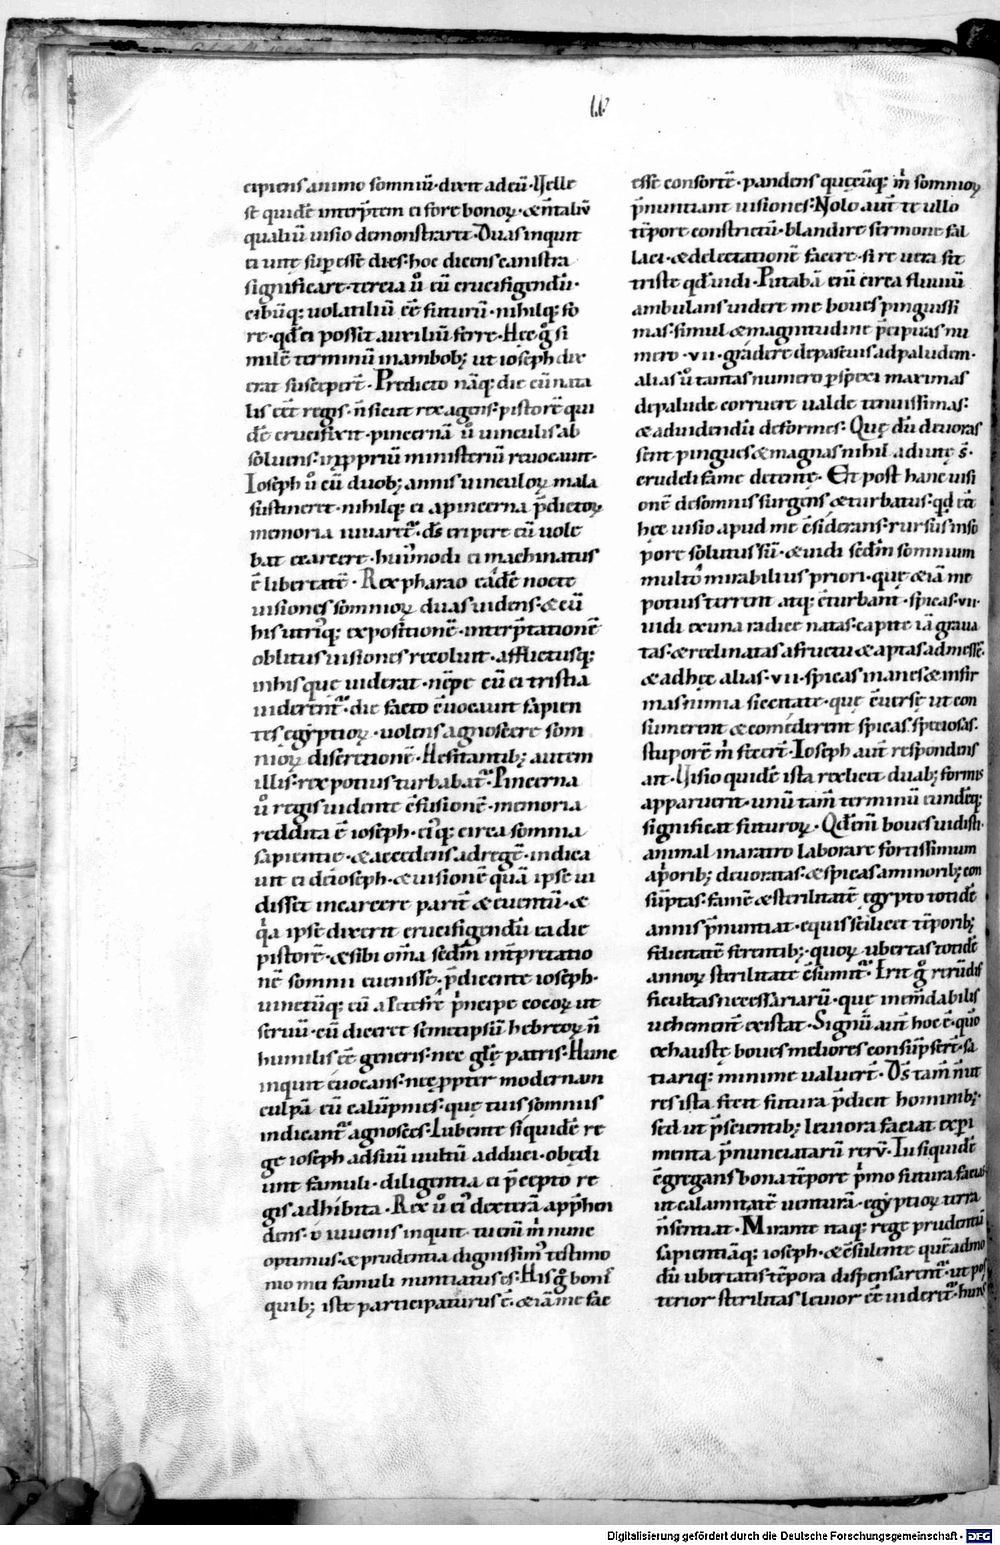 .II.
cipiens animo somniū·dixit ad eū·Velle
se quidē interp̄tem ei fore bonoꝝ·& n̄ taliū
qualiū uisio demonstraret·Duas inquit
ei uitę sup̲esse dies·hoc dicens canistra
significare·tercia ů eū crucifigendū·
cibūq; uolatiliū eē futurū·nihilq; fo
re·qd̄ ei posset auxiliū ferre·Hęc g̊ si
milē terminū in ambob; ut ioseph dix
erat susceper̄t·Predicto nāq; die cū nata
lis eēt regis·n̄ sicut rex agens·pistorē qui
dē crucifixit·pincernā ů uinculis ab
soluens·in ꝓpriū ministeriū reuocauit·
Ioseph ů cū duob; annis uinculoꝝ mala
sustineret·nihilq; ei a pincerna p̄dictoꝝ
memoria iuuaret᷑·ds̄ eripere eū uole
bat e carcere·hui᷒modi ei machinatus
ē libertatē·Rex pharao eādē nocte
uisiones somnioꝝ duas uidens·& cū
his utriq; expositionē·interp̄tationē
oblitus uisiones recoluit·afflictusq;
in his que uiderat·nēpe cū ei tristia
uiderent᷑·die facto ēuocauit sapien
tes egyptioꝝ·uolens agnoscere som
nioꝝ discretionē·Hesitantib; autem
illis·rex potius turbabat᷑·Pincerna
ů regis uidente cōfusionē·memoria
reddita ē ioseph·ei᷒q; circa somnia
sapientie·& accedens ad regē·indica
uit ei de ioseph·& uisionē quā ipse ui
disset in carcere parit̄ & euentū·&
q̇a ipse dixerit crucifigendū ea die
pistorē·& sibi om̄a scdm̄ int̄pretatio
nē somnii euenisse·p̄dicente ioseph·
uinctūq; eū a Petefre ṗncipe cocoꝝ ut
seruū·cū diceret semetipsū hebreoꝝ n̄
humilis eē generis·nec glę̄ patris·Hunc
inquit euocans·neꝗ ꝓpter modernam
culpā eū calūpnies·que tuis somniis
indicant᷑ agnosces·Lubente siquidē re
ge ioseph ad suū uultū adduci·obędi
unt famuli·diligentia ei p̄cepto re
gis adhibita·Rex ů ei᷒ dexterā app̄hen
dens·o iuuenis inquit·tu eni m̊ nunc
optimus·& prudentia dignissim᷒ testimo
nio mei famuli nuntiatus es·His g̊ boni᷒
quib; iste participaturus ē·& iā me fac
esse consortē·pandens quęcūq; m̊ somnioꝝ
p̄nuntiant uisiones·Nolo aut̄ te ullo
tēpore constrictū·blandire sermone fal
laci·& delectationē facere·si re uera sit
triste qd̄ uidi·Putabā eni circa fluuiū
ambulans uidere me boues pinguissi
mas·simul & magnitudine p̄cipuas nu
mero·vii·grādere depascuis ad paludem·
alias ů tantas numero ꝓspexi maximas
de palude corruere ualde tenuissimas·
& ad uidendū deformes·Quę dū deuoras
sent pingues & magnas nihil adiutę s̄·
crudeli fame detentę·Et post hanc uisi
onē de somnis surgens & turbatus·qd̄ eēt
hęc uisio apud me cōsiderans·rursus in so
pore solutus sū·& uidi scdm̄ somnium
multo mirabilius priori·quę & iā me
potius terrent atq; cōturbant·spicas·vii·
uidi ex una radice natas·capite iā graua
tas·& reclinatas a fructu & aptas ad messē·
& ad hęc alias·vii·spicas inanes & infir
mas nimia siccitate·quę cōuersę ut con
sumerent & comederent spicas speciosas·
stuporē m̊ fecer̄t·Ioseph aut̄ respondens
ait·Visio quidē ista rex licet duab; formis
apparuerit·unū tam̄ terminū eundēq;
significat futuroꝝ·Qd̄ eni boues uidisti·
animal in aratro laborare fortissimum
a p̊orib; deuoratas·& spicas a minorib; con
sūptas·famē & sterilitatē ęgypto totidē
annis p̄nuntiat·equis scilicet tēporib;
felicitatē ferentib;·quoꝝ ubertas totidē
annoꝝ sterilitate cōsumit᷑·Erit g̊ rerū dif
ficultas necessariarū·que inem̄dabilis
uehement̄ existat·Signū aut̄ hoc ē·q̊uo
exhaustę boues meliores consūpser̄t·sa
tiariq; minime ualuer̄t·Ds̄ tam̄ n̄ ut
res ista fient futura p̄dicit hominib;·
sed ut p̄scientib; leuiora faciat expi
menta p̄nunciatarū rerū·Tu siquidē
cōgregans bona tēpore p̊mo futura facias
ut calamitatē uenturā·egyptioꝝ terra
n̄ sentiat·Mirante itaq; rege prudentiā
sapientiāq; ioseph·& cōsulente quēadmo
dū ubertatis tēpora dispensarent᷑·ut pos
terior sterilitas leuior eē uideret᷑·hunc
Digitalisierung gefördert durch die Deutsche Forschungsgemeinschaft - DFG